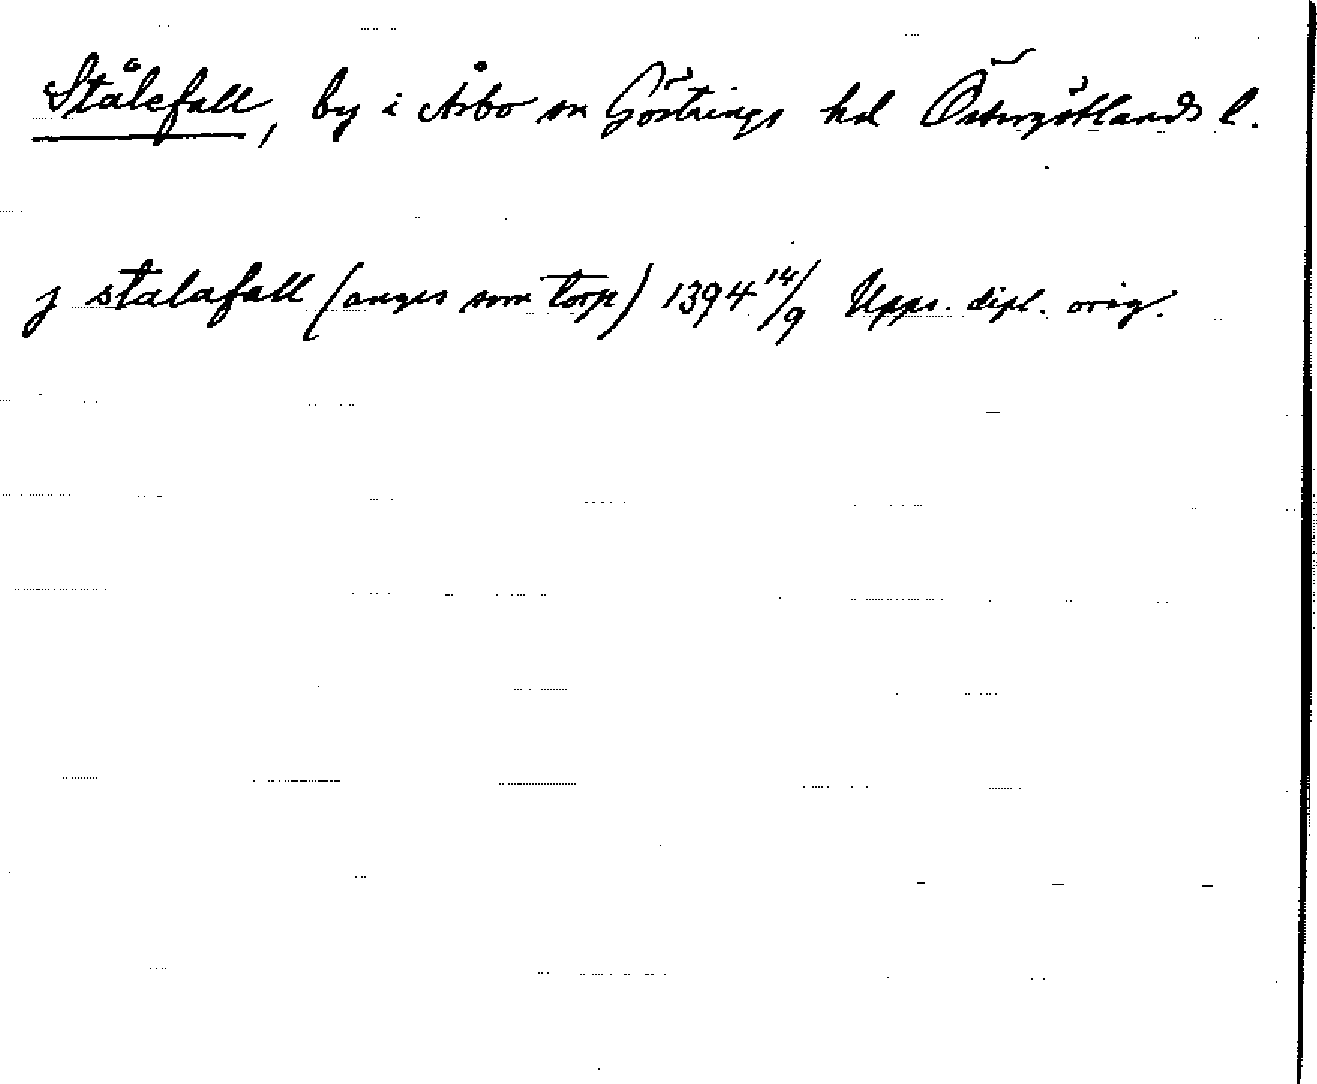 Stålefall, by i Åsbo sn Göstrings hd Östergötlands l.
j stalafall (anges som torp) 1394 14/9 Upps. dipl. orig.